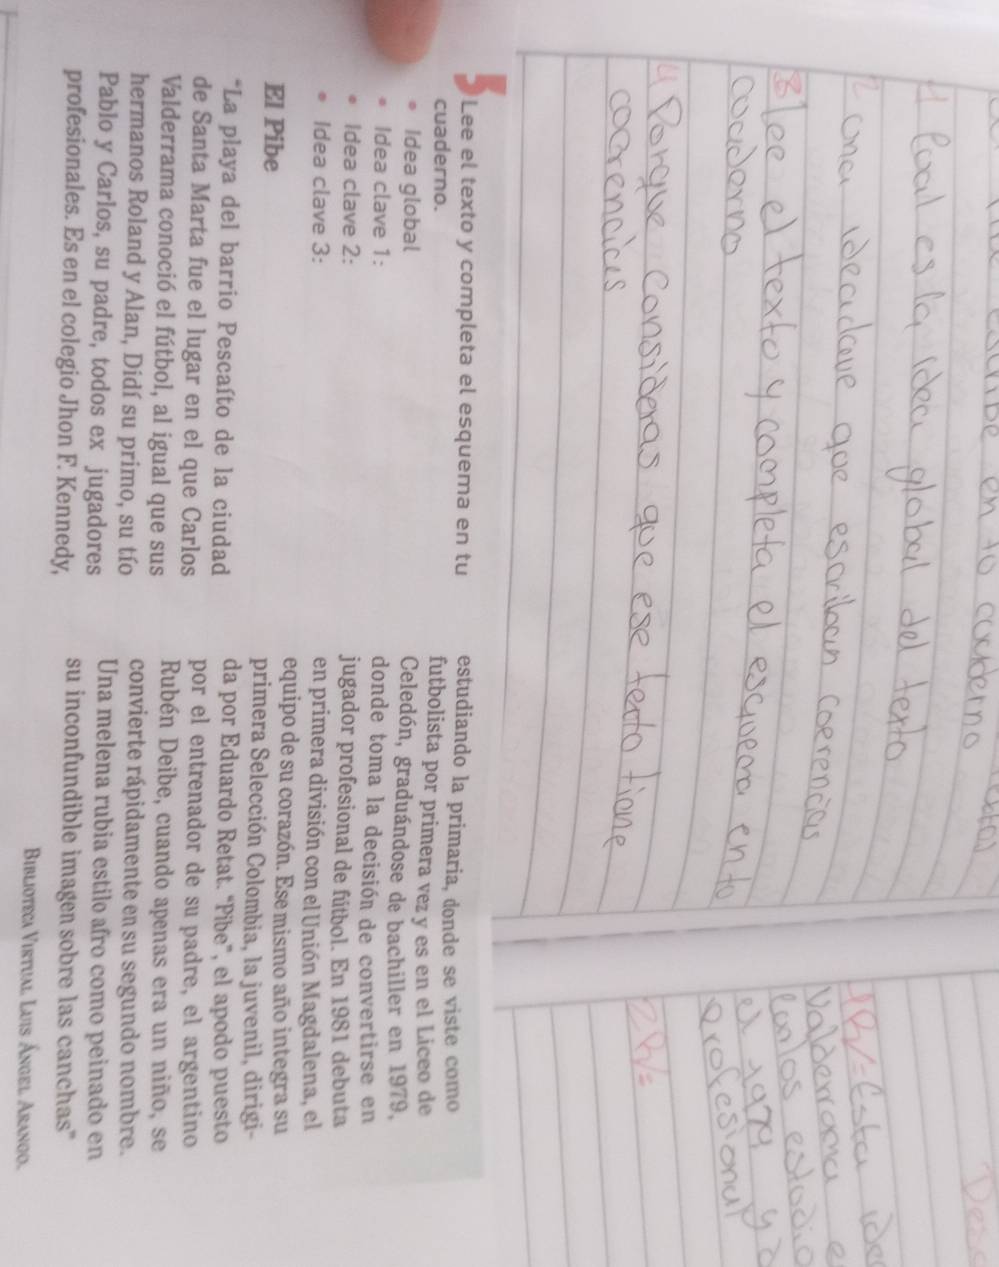 en tu cuaderno
1 Cual es la idea global del texto
2 una idea clave que escriban coerencias
3 lee el texto y completa el esquema en tu
couderno
4 Porque Consideras que ese texto tiene
coerencias
1R/= Esta idea
Valderrama
con los estudio
el 1979 y
profesional
2R/=
Lee el texto y completa el esquema en tu
cuaderno.
• Idea global
• Idea clave 1:
• Idea clave 2:
• Idea clave 3:
El Pibe
"La playa del barrio Pescaíto de la ciudad
de Santa Marta fue el lugar en el que Carlos
Valderrama conoció el fútbol, al igual que sus
hermanos Roland y Alan, Didí su primo, su tío
Pablo y Carlos, su padre, todos ex jugadores
profesionales. Es en el colegio Jhon F. Kennedy,
estudiando la primaria, donde se viste como
futbolista por primera vez y es en el Liceo de
Celedón, graduándose de bachiller en 1979,
donde toma la decisión de convertirse en
jugador profesional de fútbol. En 1981 debuta
en primera división con el Unión Magdalena, el
equipo de su corazón. Ese mismo año integra su
primera Selección Colombia, la juvenil, dirigi-
da por Eduardo Retat. "Pibe", el apodo puesto
por el entrenador de su padre, el argentino
Rubén Deibe, cuando apenas era un niño, se
convierte rápidamente en su segundo nombre.
Una melena rubia estilo afro como peinado en
su inconfundible imagen sobre las canchas"
Biblioteca Virtual Luis Ángel Arango.